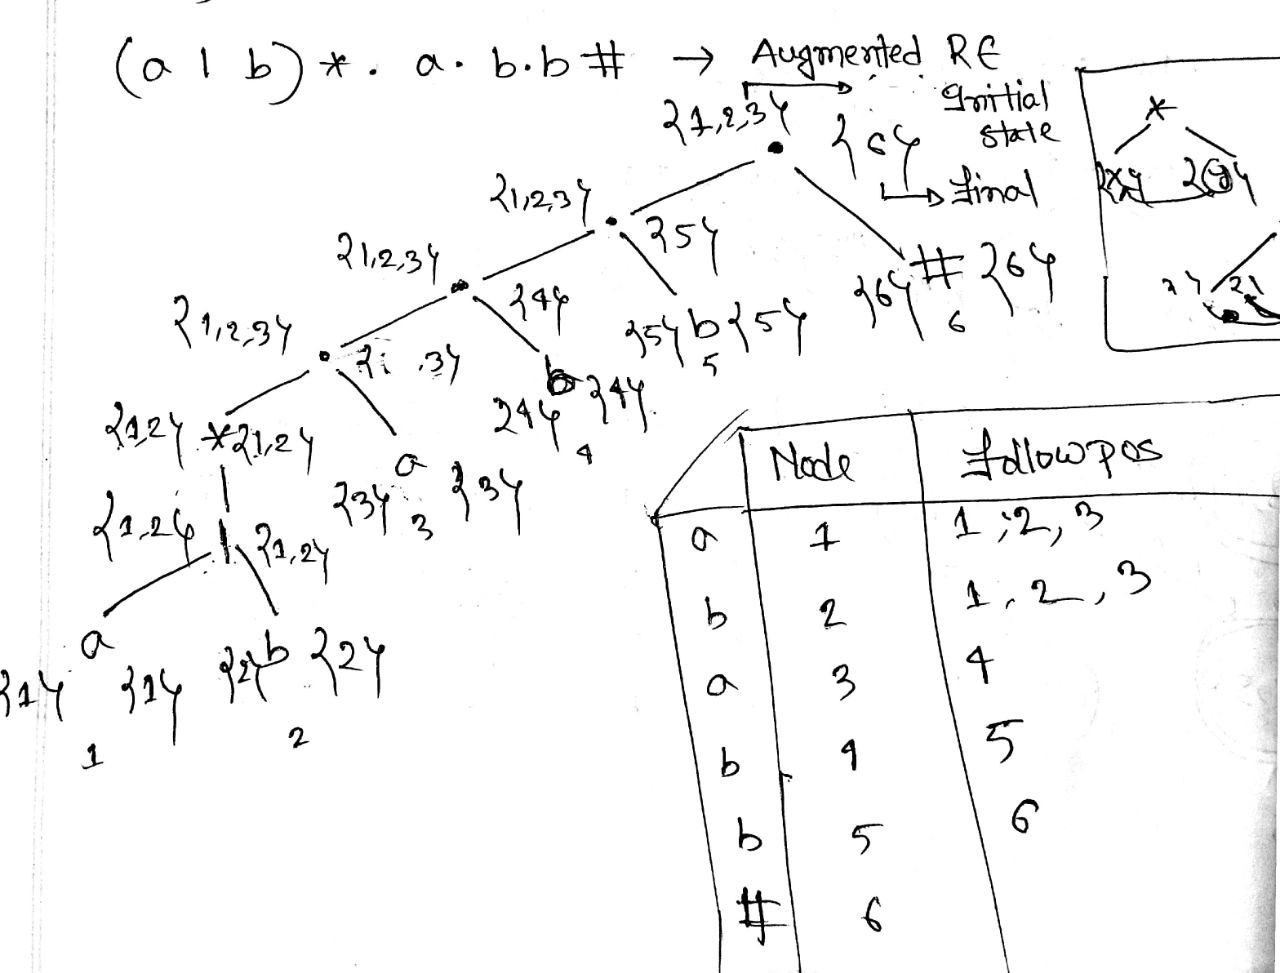 (a | b)*. a. b.b # → Augmented RE
{1,2,3} Initial
state
{6}
final
{1,2,3} {5}
{1,2,3} {4}
# {6}
{6} 6
{1,2,3} {5} b {5}
5
{4} b {4}
4
{1,2} * {1,2}
a
{3} 3 {3}
{1,2} | {1,2}
a
{1} {1} {2} b {2}
1 2
*
Node followpos
a 1 1,2,3
b 2 1,2,3
a 3 4
b 4 5
b 5 6
# 6